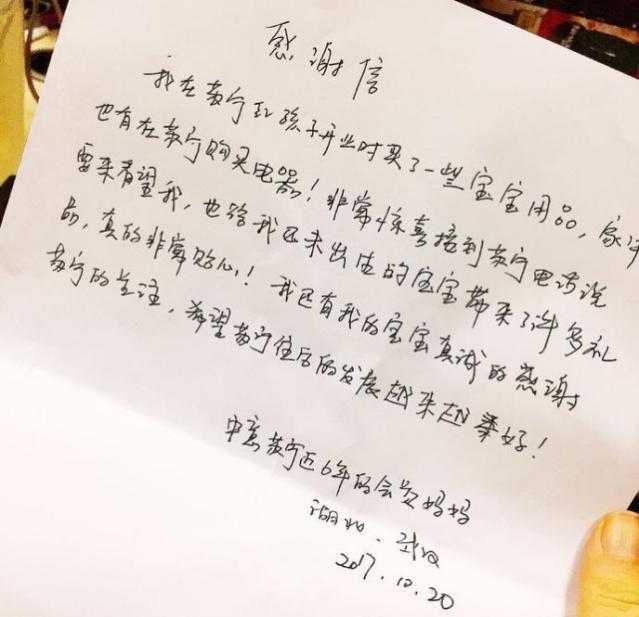 感谢信
我在苏宁红孩子开业时买了一些宝宝用品，家中
也有在苏宁购买电器！非常惊喜接到苏宁电话说
要来看望我，也给我还未出生的宝宝带来了许多礼
品，真的非常贴心！我还有我的宝宝真诚的感谢
苏宁的关注，希望苏宁往后的发展越来越美好！
中意苏宁近6年的会员妈妈
湖北·武汉
2017.10.20